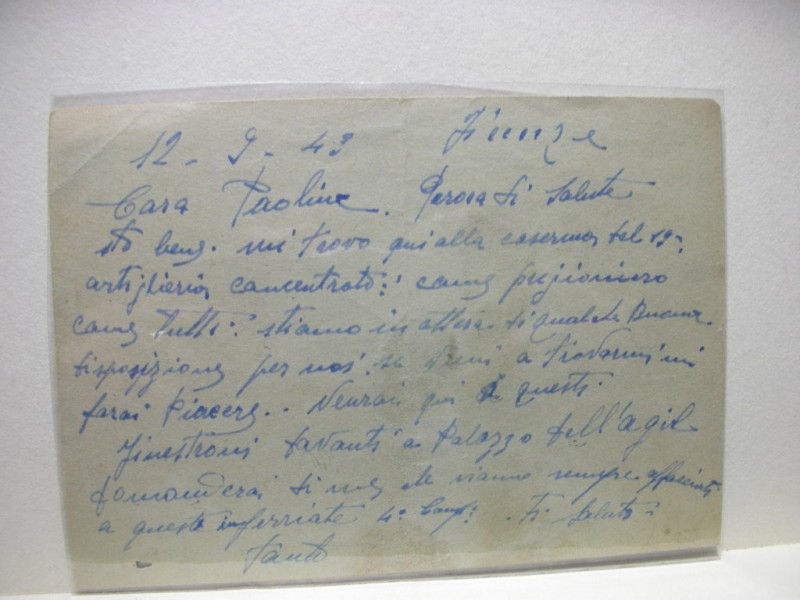 12 - 9 - 43 Firenze
Cara Paolina. Ti Saluto
sto bene. mi trovo qui alla caserma del 19º
artiglieria concentrato: come prigioniero
come tutti: stiamo in attesa di qualche Buona
disposizione per noi. se vieni a trovarmi mi
farai Piacere.. Verrai qui a questi
finestroni davanti a Palazzo dell'agil
domanderai di me che siamo sempre affacciati
a queste inferriate 4º Comp: . Ti Saluto